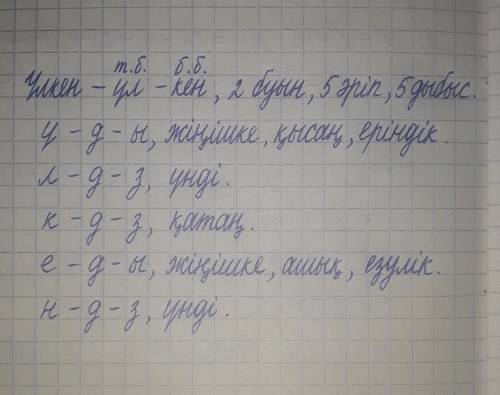 т.б. б.б.
Үлкен – үл – кен, 2 буын, 5 әріп, 5 дыбыс.
ү – д – ы, жіңішке, қысаң, еріндік.
л – д – з, үнді.
к – д – з, қатаң.
е – д – ы, жіңішке, ашық, езулік.
н – д – з, үнді.